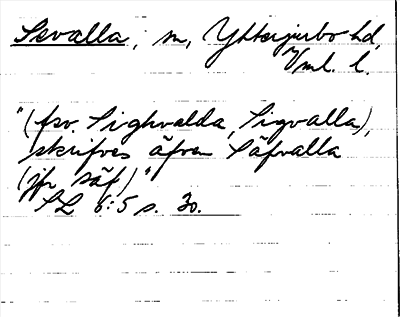 Sevalla, sn, Yttertjurbo hd,
Vml. l.
"(fsv. Sighvalda, Sigvalla),
skrifves äfven Säfvalla
(jfr säf)"
SL 6:5 s. 30.